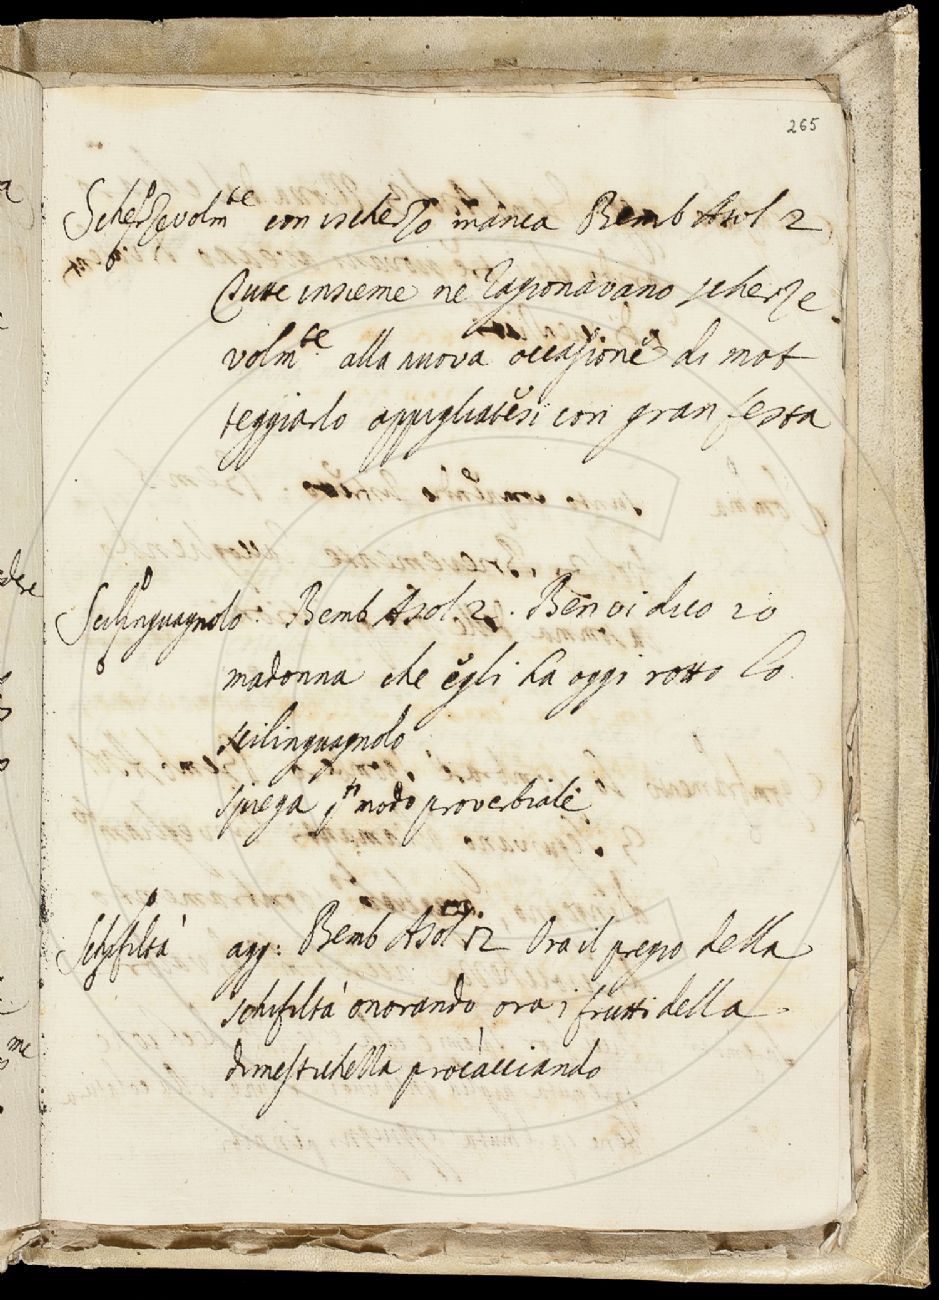 265
Scherzevolm.te con ischerzo manca Bemb Asol 2
Tutte insieme ne ragionavano scherze
volm.te alla nuova occasione di mot
teggiarlo appigliatesi con gran festa
Scilinguagnolo: Bemb Asol 2. Ben vi dico io
madonna che egli ha oggi rotto lo
scilinguagnolo
spiega modo proverbiale
Schifiltà agg: Bemb Asol 2 Ora il pregio della
schifiltà onorando ora i frutti della
dimestichella procacciando